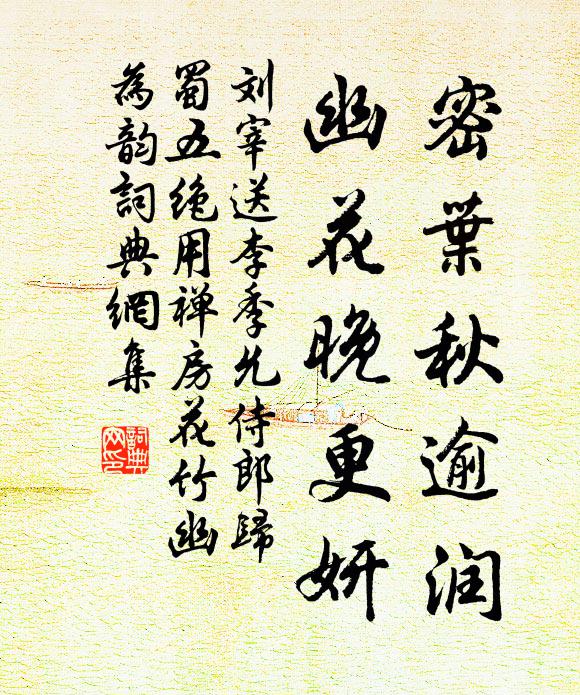 密葉秋逾润
幽花晚更妍
刘宰送李季允侍郎歸
蜀五绝用禅房花竹幽
為韵詞典網集
詞典网印